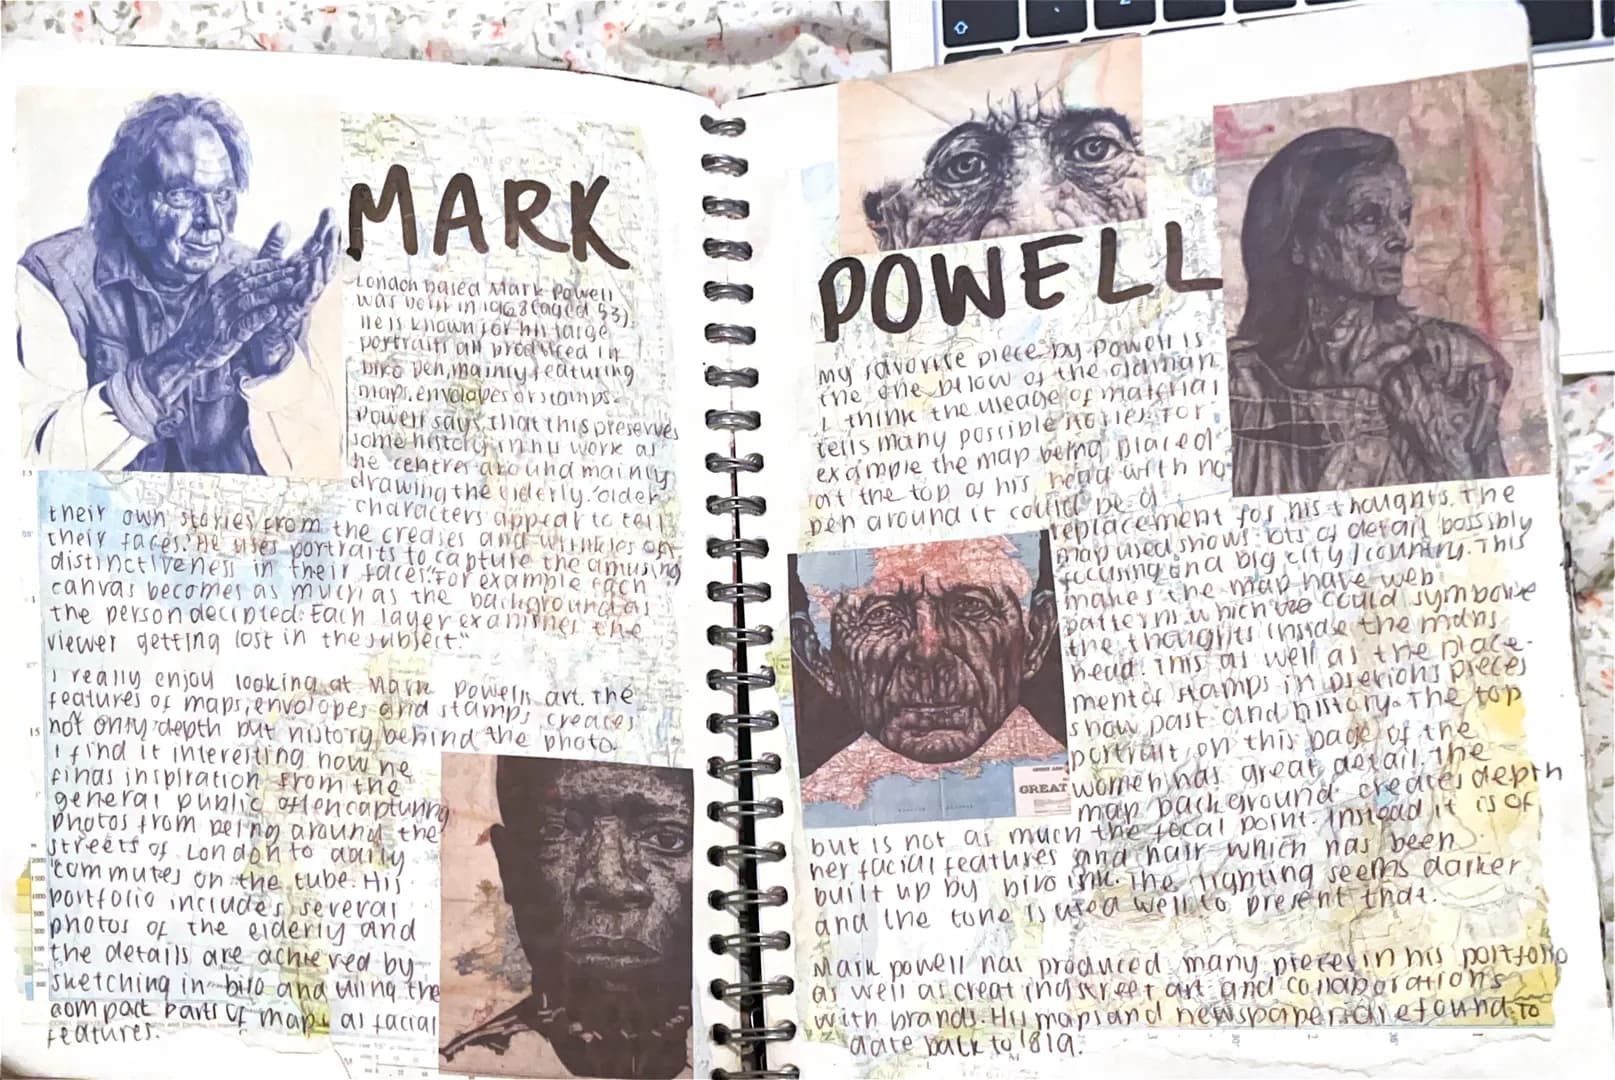 MARK
London based Mark Powell
was born in 1968 (aged 53)
He is known for his large
portraits all produced in
biro pen, mainly featuring
map, envelopes or stamps.
Powell says, that this preserves
some history in his work as
he centres around mainly
drawing the elderly. 'older
characters appear to tell
their own stories from the creases and wrinkles of
their faces.' He uses portraits to capture the amusing
distinctiveness in their faces. "For example each
canvas becomes as much as the background as
the person decipted. Each layer examines the
viewer getting lost in the subject."
I really enjoy looking at Mark Powells art. The
features of maps, envolopes and stamps creates
not only depth but history behind the photo.
I find it interesting how he
finds inspiration from the
general public often capturing
photos from being around the
streets of London to daily
commutes on the tube. His
portfolio includes several
photos of the elderly and
the details are achieved by
sketching in biro and using the
compact parts of maps as facial
features.
POWELL
my favorite piece by Powell is
the one below of the oldman.
I think the useage of material
tells many possible stories. For
example the map being placed
at the top of his head with no
pen around it could be a
replacement for his thoughts. The
map used shows lots of detail possibly
focusing on a big city / country. This
makes the map have web
patterns which could symbolise
the thoughts inside the mans
head. This as well as the place-
ment of stamps in pieces
show past and history. The top
portrait on this page of the
women has great detail. The
map background creates depth
but is not as much the focal point. Instead it is of
her facial features and hair which has been
built up by biro ink. The lighting seems darker
and the tone is used well to present that.
GREAT
Mark powell has produced many pieces in his portfolio
as well as creating street art and collaborations
with brands. His maps and newspapers are found to
date back to 1819.